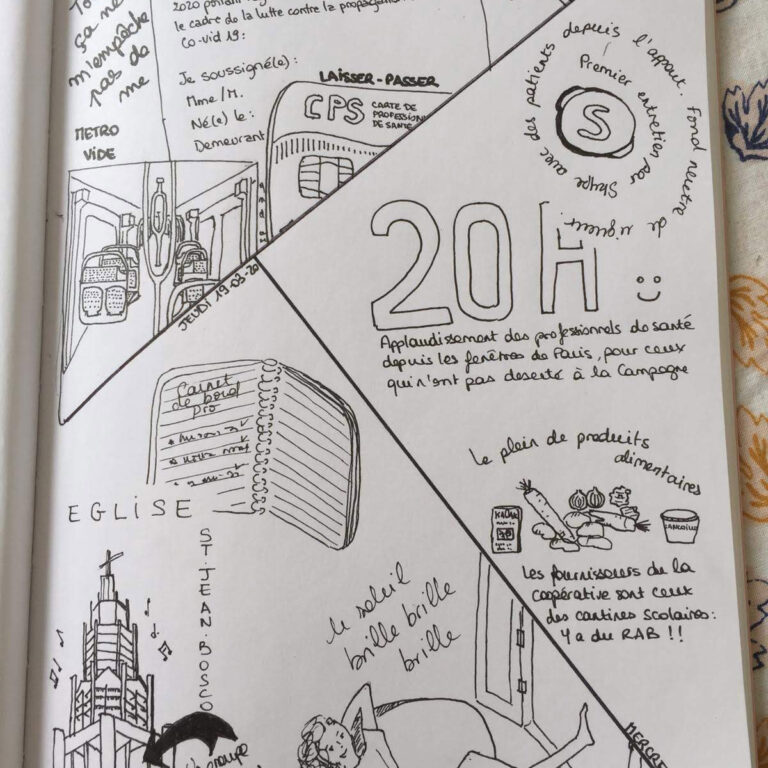 ça ne
m'empêche
pas de
me
2020 portant
le cadre de la lutte contre la propagation
Co-vid 19:
Je soussigné(e):
Mme/M.
Né(e) le:
Demeurant
LAISSER-PASSER
CPS
CARTE DE
PROFESSION
DE SANTÉ
METRO
VIDE
Premier entretien par Skype avec des patients depuis l'appart. Fond neutre de rigueur.
S
20H
Applaudissement des professionnels de santé
depuis les fenêtres de Paris, pour ceux
qui n'ont pas deserté à la Campagne
JEUDI 19-03-20
Carnet
de bord
pro
EGLISE
ST.JEAN.BOSCO
Le plein de produits
alimentaires
Les fournisseurs de la
coopérative sont ceux
des cantines scolaires:
Y a du RAB !!
le soleil
brille brille
brille
groupe
MERCRE